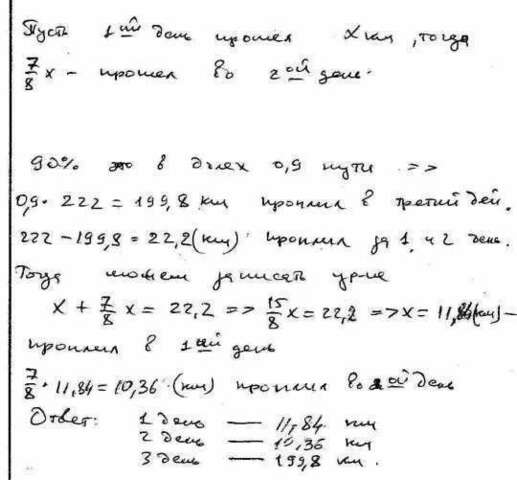 Пусть 1ый день прошел x км, тогда
7/8 x - прошел во 2ой день.
90% это в долех 0,9 пути =>
0,9 · 222 = 199,8 км прошли в третий ден.
222 - 199,8 = 22,2 (км) прошли за 1 и 2 день.
Тогда можем записать ур-ие
x + 7/8 x = 22,2 => 15/8 x = 22,2 => x = 11,84 (км) -
прошли в 1ый день
7/8 · 11,84 = 10,36 (км) прошли во 2ой день
Ответ: 1 день — 11,84 км
2 день — 10,36 км
3 день — 199,8 км.